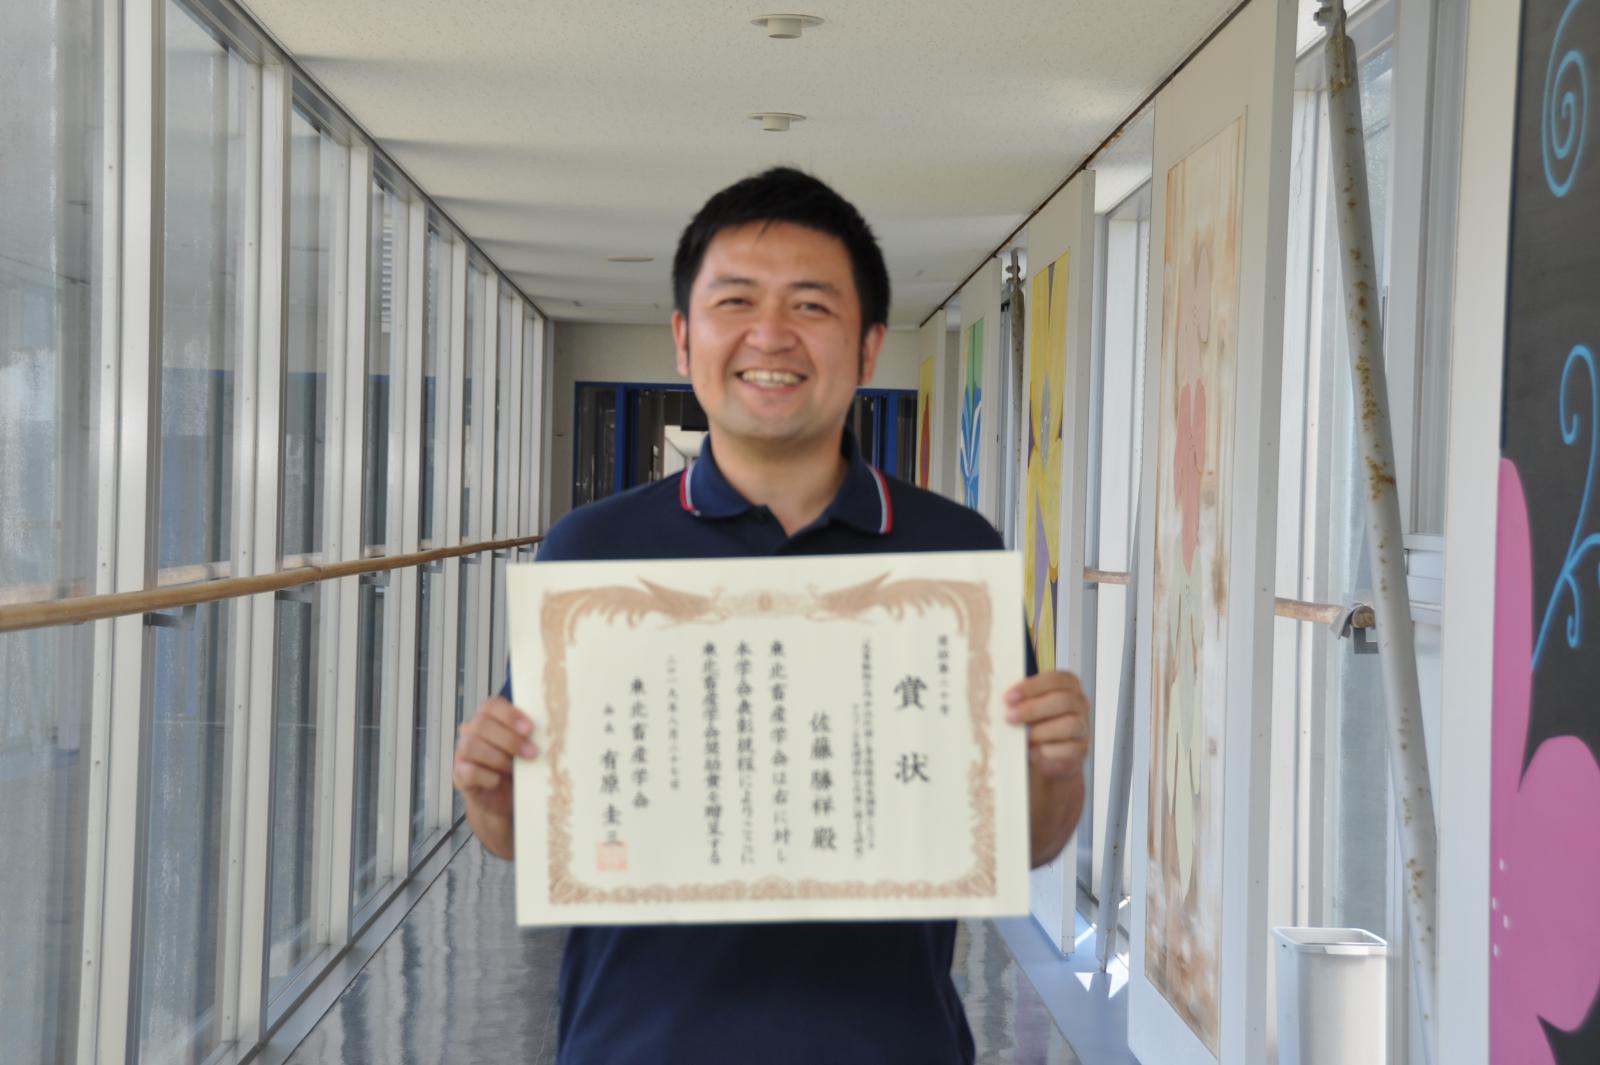 奨励第二十号
賞状
佐藤勝祥殿
東北畜産学会は右に対し
本学会表彰規程によりここに
東北畜産学会奨励賞を贈呈する
二〇一九年八月二十七日
東北畜産学会
会長 有原圭三